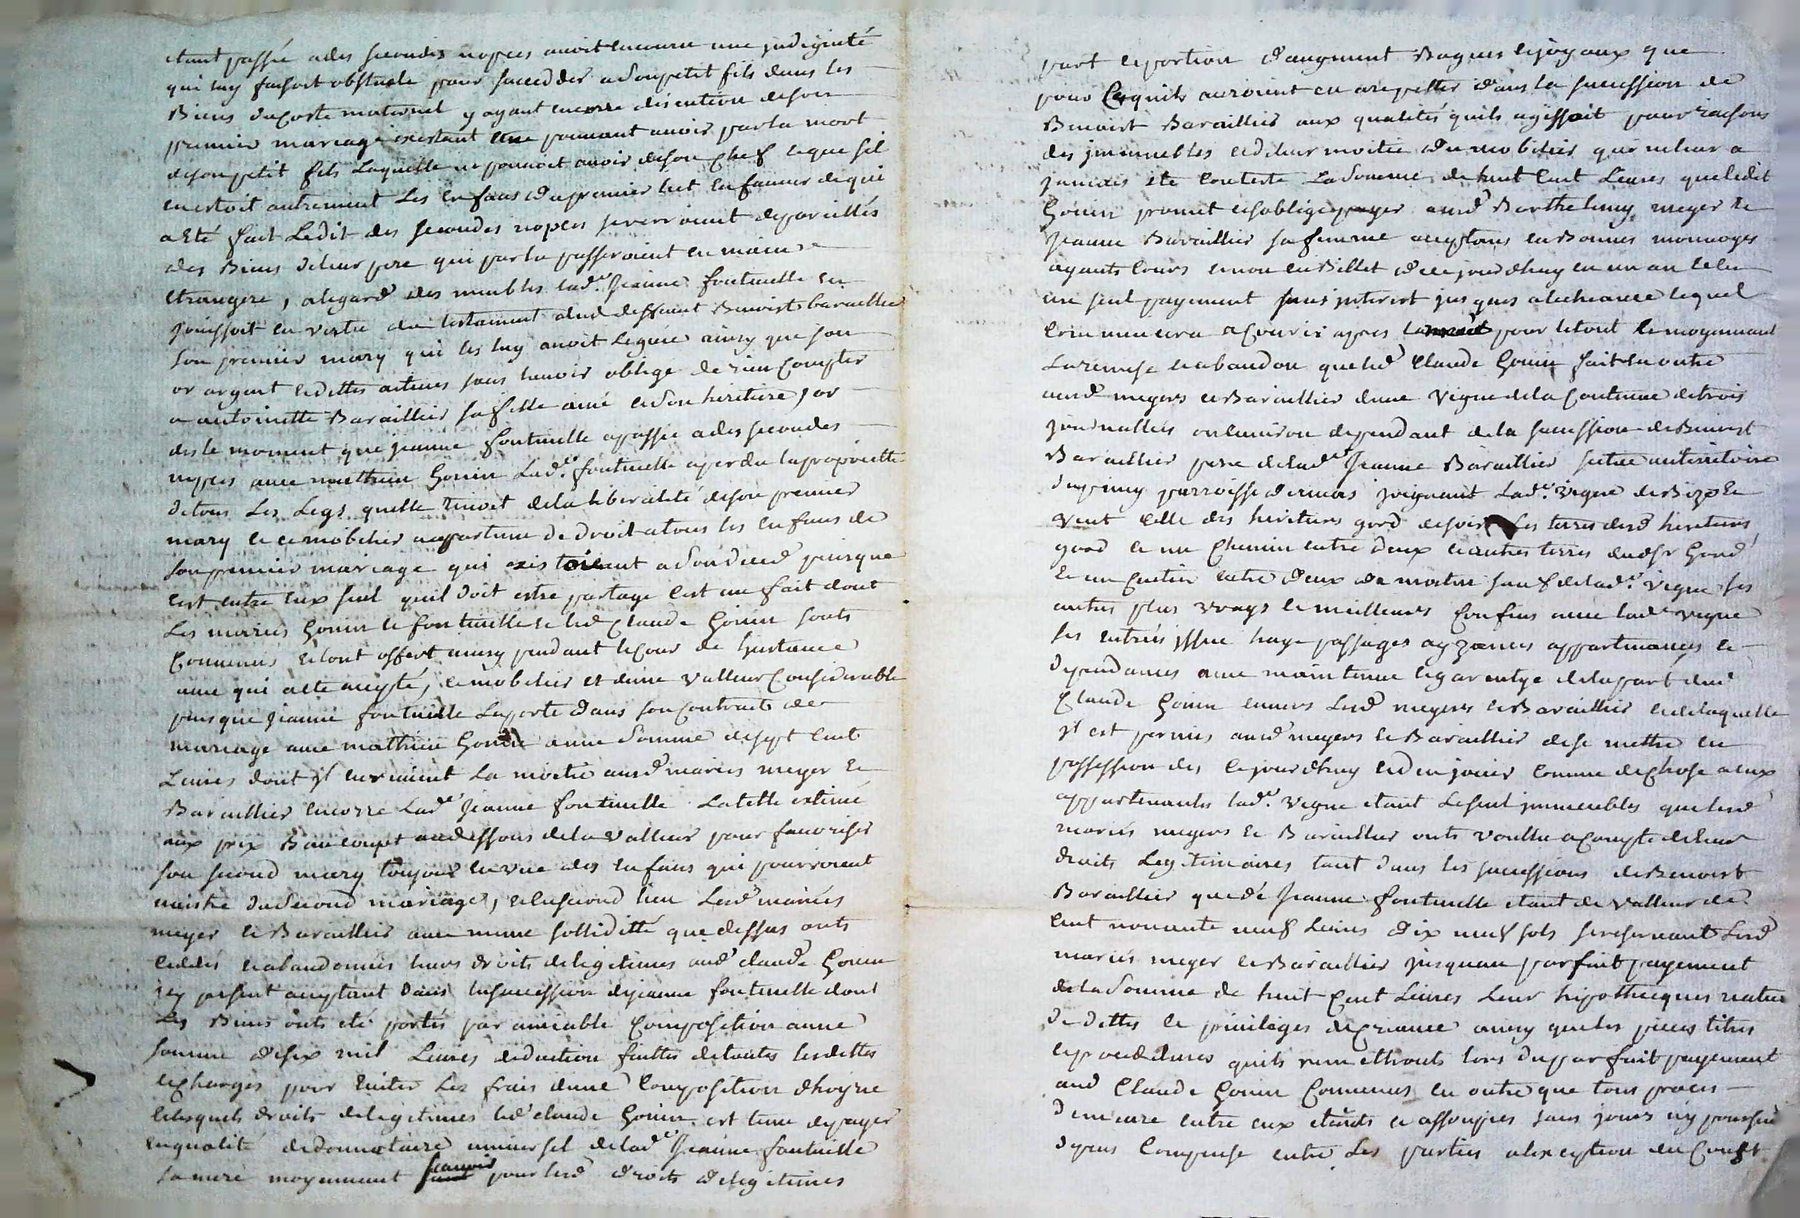 etant passée a des secondes nopces avoit encouru une indignité
qui luy faisoit obstacle pour succedder a son petit fils dans les
Biens du costé maternel y ayant encorre des enfans de son
premier mariage existant ne pouvant avoir par la mort
de son petit fils laquelle ne pouvoit avoir de son chef que s'il
en estoit autrement les enfans du premier lict en faveur de qui
a été fait Ledit des secondes nopces se verroient depouillés
des Biens de leur pere qui par la passeroient en mains
etrangere, a legard des meubles lad.e Jeanne fontenelle en
Jouissoit en vertu du testament dud deffunt Benoist baraillier
son premier mary qui les luy avoit Legué ainsy que son
or argent et dettes actives sans lavoir obligé de rien Compter
a antoinette Baraillier sa fille ainé et son heritiere, or
des le moment que jeanne fontenelle a passée a des secondes
nopces avec matthieu Gonin Lad.e fontenelle a perdu la proprieté
de tous les Legs quelle tenoit de la liberalité de son premier
mary et ce mobilier appartenu de droit a tous les enfans de
son premier mariage qui existoient a son deced puisque
cest entre eux seul quil doit estre partagé cest un fait dont
Les mariés Gonin et fontenelle et led Claude Gonin sonts
Convenus et lont offert ainsy pendant le cour de linstance
ce qui a été accepté, ce mobilier est dune valleur Considerable
puis que jeanne fontenelle la porté dans son contrat de
mariage avec mathieu Gonin a une somme de sept cent
Livres dont il en revient la moitié ausd mariés meyer et
Baraillier encorre Lad.e Jeanne fontenelle la telle estimé
aux prix Beaucoupt au dessous de la valleur pour favoriser
son second mary toujours en vue des enfans qui pourroient
naistre du second mariage, et en second lieu Lesd mariés
meyer et Baraillier avec meme solliditté que dessus onts
cedés et abandonnés leurs droits de legitimes aud claude Gonin
icy present acceptant dans la succession de jeanne fontenelle dont
Les Biens onts été portés par amiable Composition a une
somme de six mil Livres deduction faittes de toutes les dettes
et charges pour eviter les frais dune Composition dhoyrie
lesquels droits de legitimes led claude Gonin est tenu de payer
en qualité de donnataire universel de lad.e Jeanne fontenelle
sa mere moyennant scavoir pour lesd droits de legitimes
part et portion daugment Bagues et joyaux que
pour ce quils auroient eu a repetter dans la succession de
Benoist Baraillier aux qualités quils agissoit pour raisons
des immeubles et de leur moitié du mobilier qui ne leur a
jamais été contesté La somme de huit Cent Livres que ledit
Gonin promet et soblige payer ausd Barthelemy meyer et
Jeanne Baraillier sa femme acceptans en Bonnes monnoyes
ayants cours et non en Billet de ce jourdhuy en un an et en
un seul payement sans interest jusques a lecheance lequel
commencera a courir apres pour le tout et moyennant
La remise et abandon que led Claude Gonin fait en outre
ausd meyers et Baraillier dune vigne de la contenue de trois
journallés ou environ dependant de la succession de Benoist
Baraillier pere de lad.e Jeanne Baraillier scitué au territoire
parroisse joignant Lad.e vigne de Bize et
vent celle des heritiers gord de soir Les terres desd heritiers
gord et un Chemin entre deux et autres terres dud Sr Gord
et un sentier entre deux de matin sauf de lad.e vigne ses
autres plus vrays et meilleurs Confins avec lad.e vigne
ses entrées issue haye passages ayzances appartenances et
dependances avec maintenue et garentye de la part dud
Claude Gonin envers Lesd meyers et Baraillier et de laquelle
il est permis ausd meyers et Baraillier de se mettre en
possession des ce jourdhuy et den jouir comme de chose a eux
appartenantes lad.e vigne etant Le seul immeubles que lesd
mariés meyers et Baraillier onts voullu a Compte de leur
droits Legitimaires tant dans les successions de Benoist
Baraillier que de Jeanne fontenelle etant de valleur de
cent nonante neuf Livres dix neuf sols se reservant Lesd
mariés meyer et Baraillier jusquau parfait payement
de la somme de huit Cent Livres Leur hipotheques nature
de dettes et privileges de criance ainsy que les pieces titres
et procedures quils remettronts lors du parfait payement
aud Claude Gonin Convenus en outre que tous procès
demeure entre eux eteints et assoupies sans jamais
depens Compensé entre Les parties a lexception du Coust